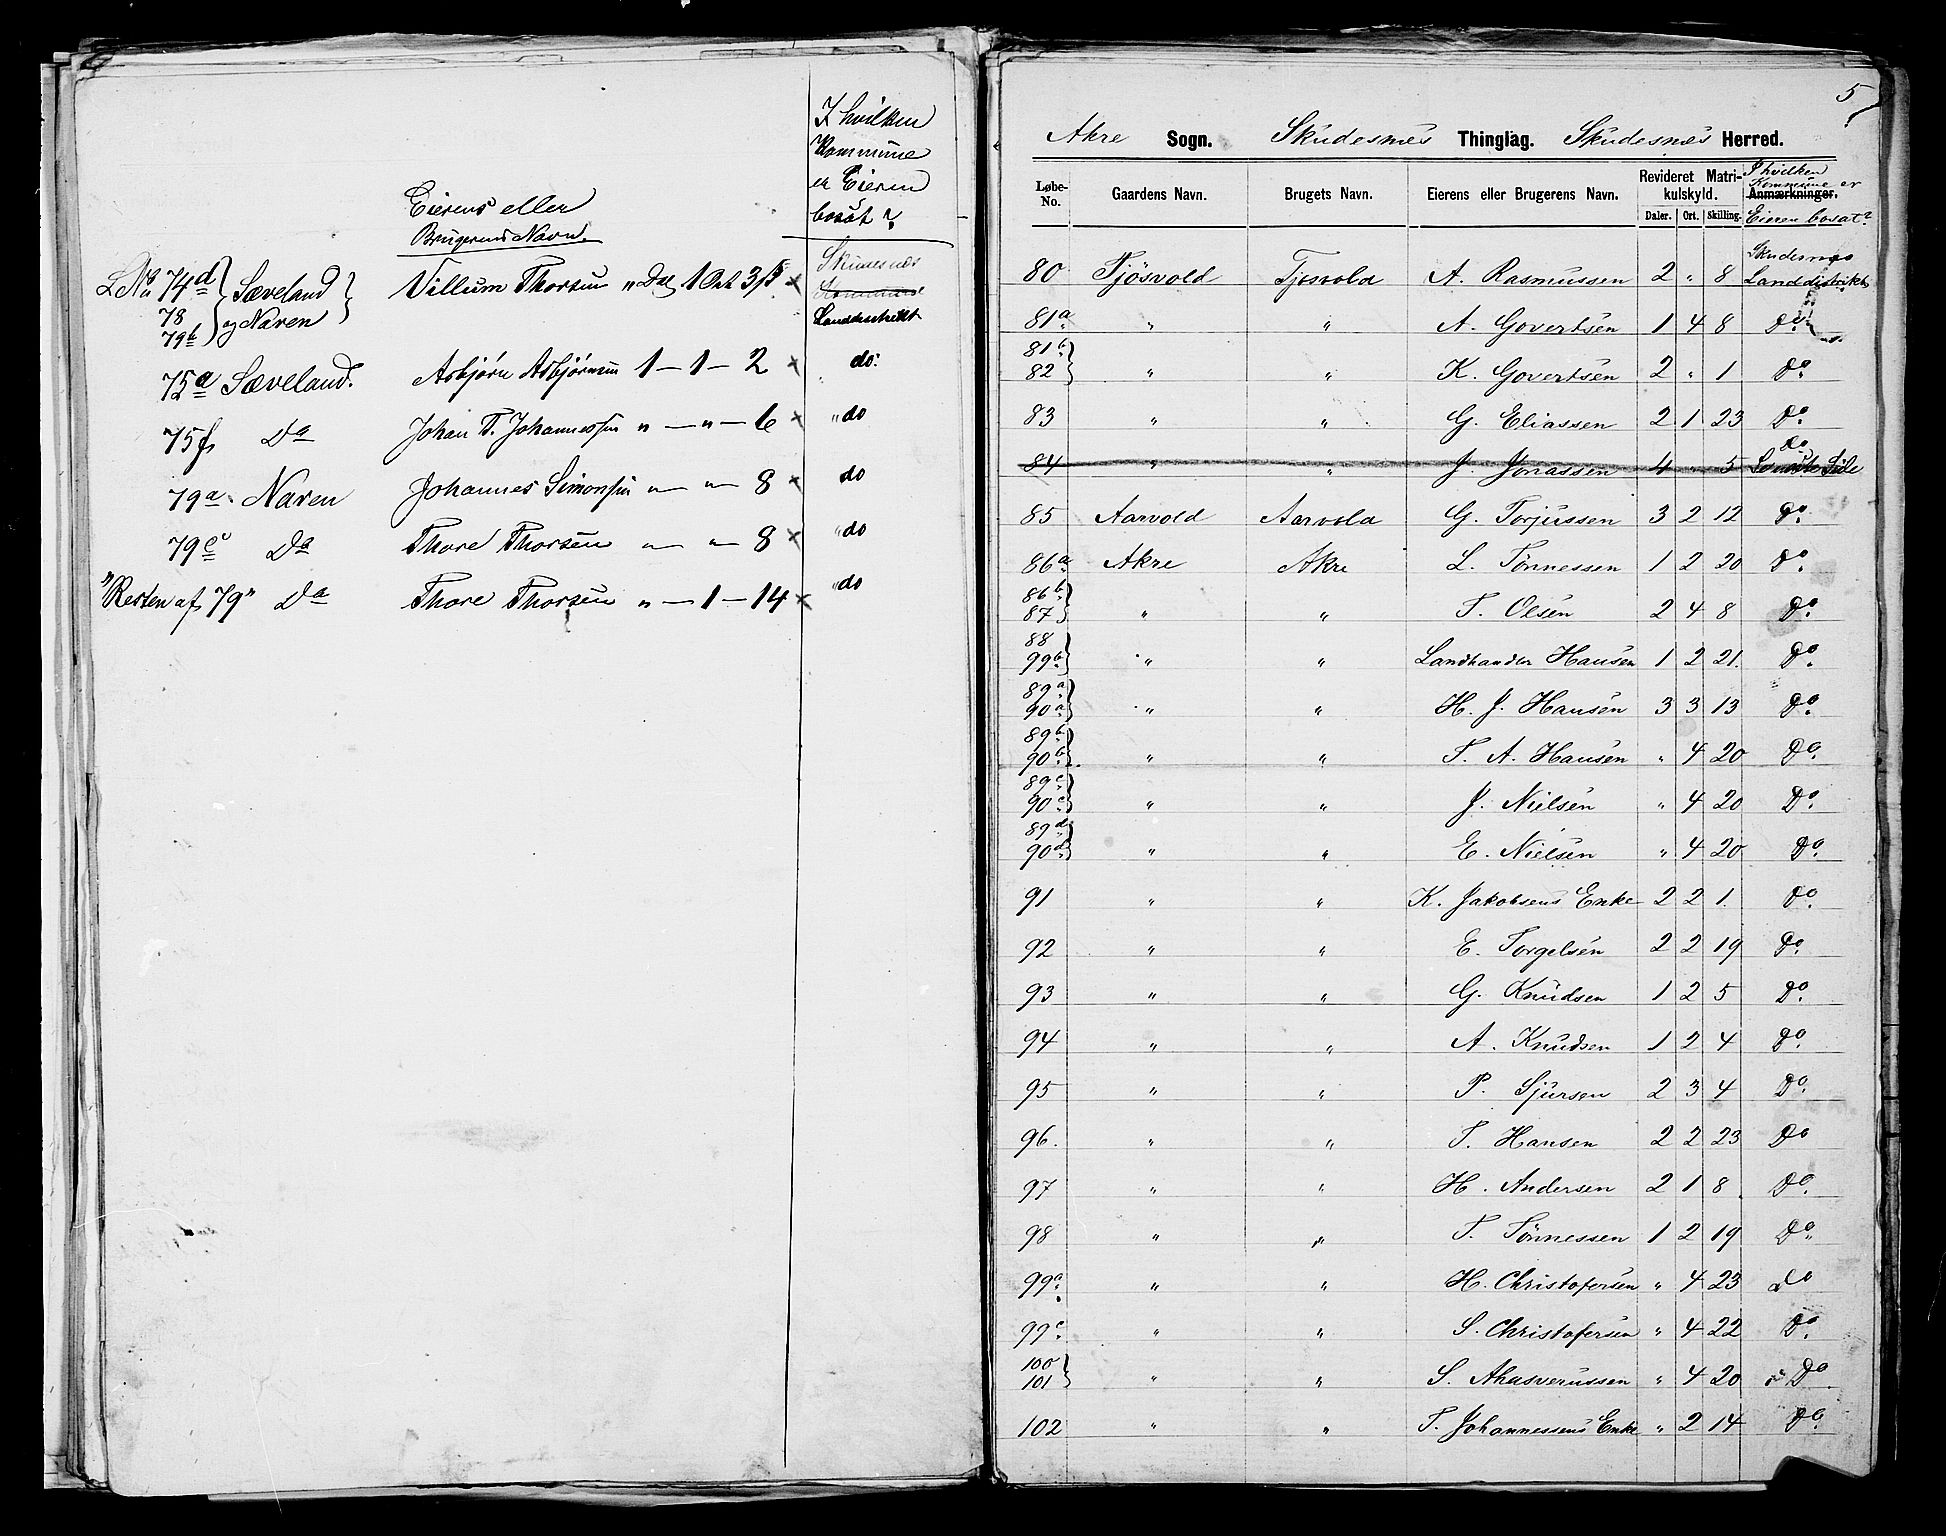 I hvilken
Kommune
er Eieren
bosat?
Eierens eller
Brugerens Navn.
L No 74d Sæveland Villum Thorsen " Dal 1 Ort 3 ß × Skudesnæs
78 Kommune
79b og Naren Landdistrikt
75a Sæveland. Asbjörn Asbjörnsen 1 — 1 — 2 × do:
75f Do Johan T. Johannessen " — " — 6 × " do
79a. Naren Johannes Simonsen " — " — 8 × do
79c Do Thore Thorsen " — " — 8 × " do
"Resten af 79" Do Thore Thorsen " — 1 — 14 × " do
5
Akre Sogn. Skudesnes Thinglag. Skudesnæs Herred.
Løbe-No. Gaardens Navn. Brugets Navn. Eierens eller Brugerens Navn. Revideret Matrikulskyld. Daler. Ort. Skilling. Anmærkninger. I hvilken Kommune er Eieren bosat?
80 Tjösvold Tjosvold A. Rasmussen 2 " 8 Skudesnæs Landdistrikt
81a " " A. Govertsen 1 4 8 Do
81b
82 " " K. Govertsen 2 " 1 Do
83 " " G. Eliassen 2 1 23 Do
84 " " J. Jonassen 4 " 5 do Side
85 Aarvold Aarvold G. Torjussen 3 2 12 Do
86a Akre Akre L. Tönnessen 1 2 20 Do
86b
87 " " T. Olsen 2 4 8 Do
88
99b " " Landhandler Hansen 1 2 21. Do
89a
90a " " H. J. Hansen 3 3 13 Do
89b
90b " " T. A. Hansen " 4 20 Do
89c
90c " " J. Nielsen " 4 20 Do
89d
90d " " E. Nielsen " 4 20 Do
91 " " K. Jakobsens Enke 2 2 1. Do
92 " " E. Torgelsen 2 2 19 Do
93 " " G. Knudsen 1 2 5 Do
94 " " A. Knudsen 1 2 4 Do
95 " " P. Sjursen 2 3 4 Do
96. " " T. Hansen 2 2 23 Do
97 " " H. Andersen 2 1 8 Do
98 " " T. Tönnessen 1 2 19 Do
99a " " H. Christofersen " 4 23 do
99c " " S. Christofersen " 4 22 Do
100
101 " " S. Ahasverussen " 4 20 Do
102 " " T. Johannessens Enke " 2 14 Do